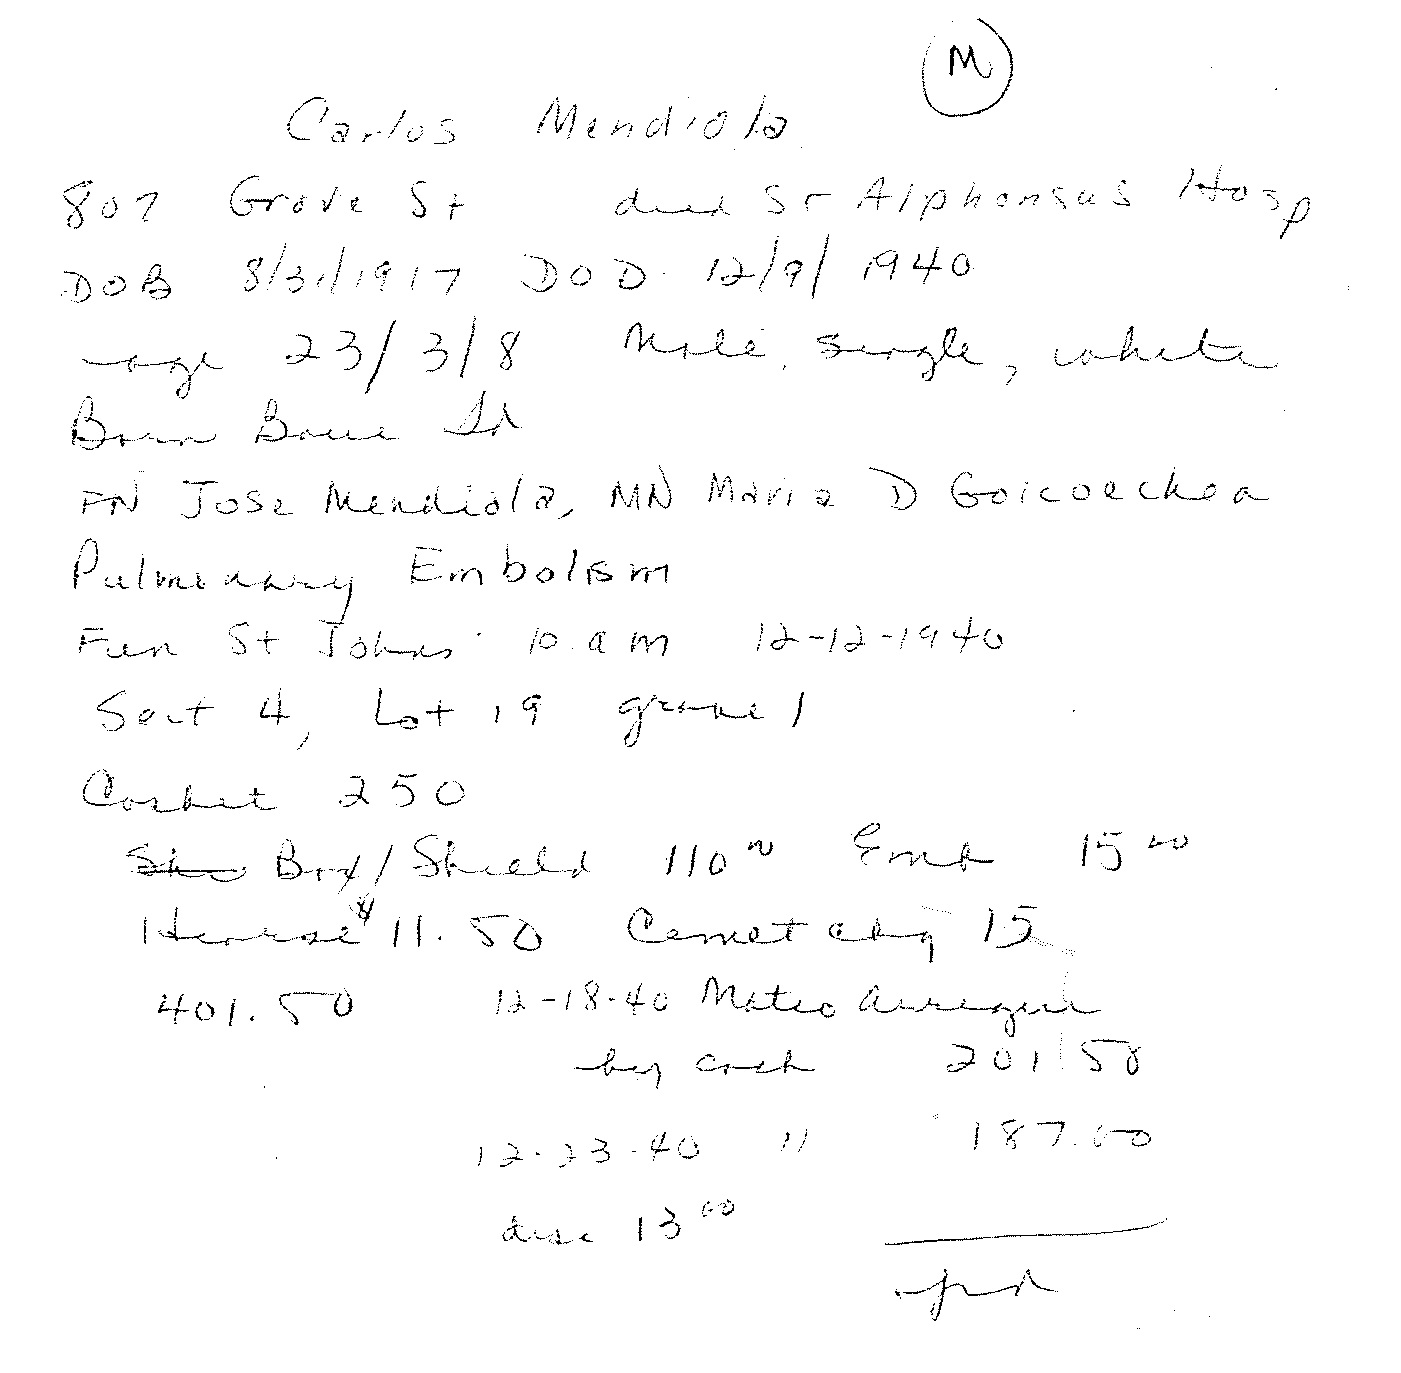 M
Carlos Mendiola
807 Grove St died St Alphonsus Hosp
DOB 8/31/1917 DOD 12/9/1940
age 23/3/8 Male, single, white
Born Boise Id
FN Jose Mendiola, MN Maria D Goicoechea
Pulmonary Embolism
Fun St Johns 10 am 12-12-1940
Sect 4, Lot 19 grave 1
Casket 250
Box/Shield 110 00 Emb 15 00
Hearse $11.50 Cemet chg 15
401.50 12-18-40 Mateo Arregui
by cash 201 50
12-23-40 " 187.00
disc 13 00
pd